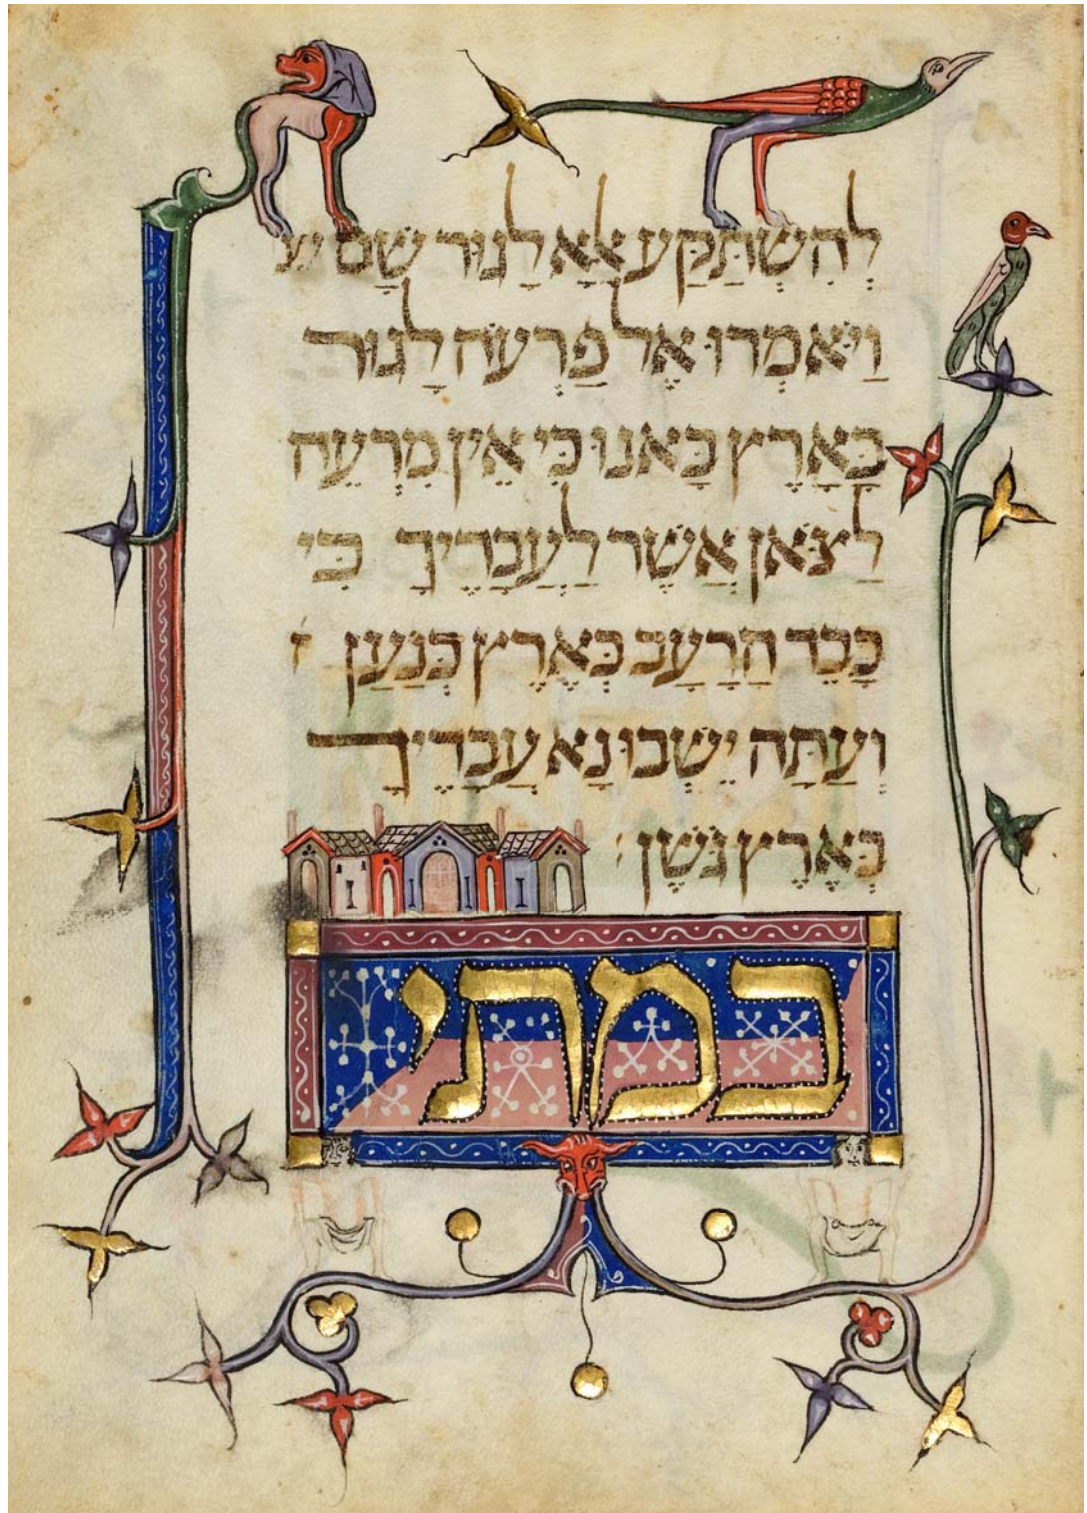 לְהִשְׁתַּקֵּעַ אֶלָּא לָגוּר שָׁם
וַיֹּאמְרוּ אֶל פַּרְעֹה לָגוּר
בָּאָרֶץ בָּאנוּ כִּי אֵין מִרְעֶה
לַצֹּאן אֲשֶׁר לַעֲבָדֶיךָ כִּי
כָבֵד הָרָעָב בְּאֶרֶץ כְּנַעַן
וְעַתָּה יֵשְׁבוּ נָא עֲבָדֶיךָ
בְּאֶרֶץ גֹּשֶׁן
במתי